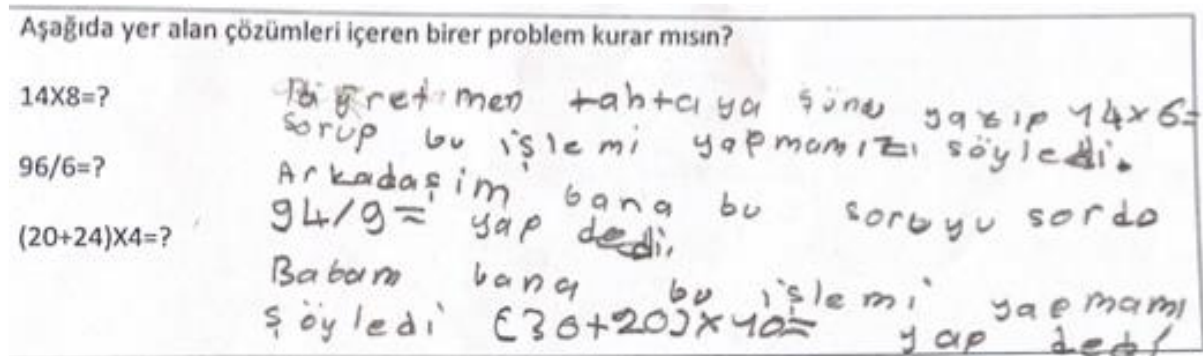 Aşağıda yer alan çözümleri içeren birer problem kurar mısın?
14X8=?
Öğretmen tahtaya şunu yazıp 14x6=
sorup bu işlemi yapmamızı söyledi.
96/6=?
Arkadaşim bana bu soruyu sordo
94/9= yap dedi.
(20+24)X4=?
Babam bana bu işlemi yapmamı
şöyledi (30+20)x10= yap dedi